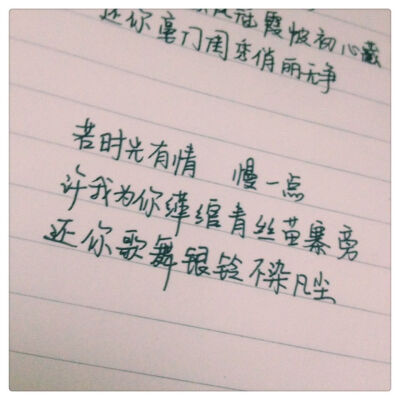 冠霞帔初心藏
还你豪门闺秀俏丽无争
若时光有情 慢一点
许我为你绾青丝苗寨旁
还你歌舞银铃不染凡尘